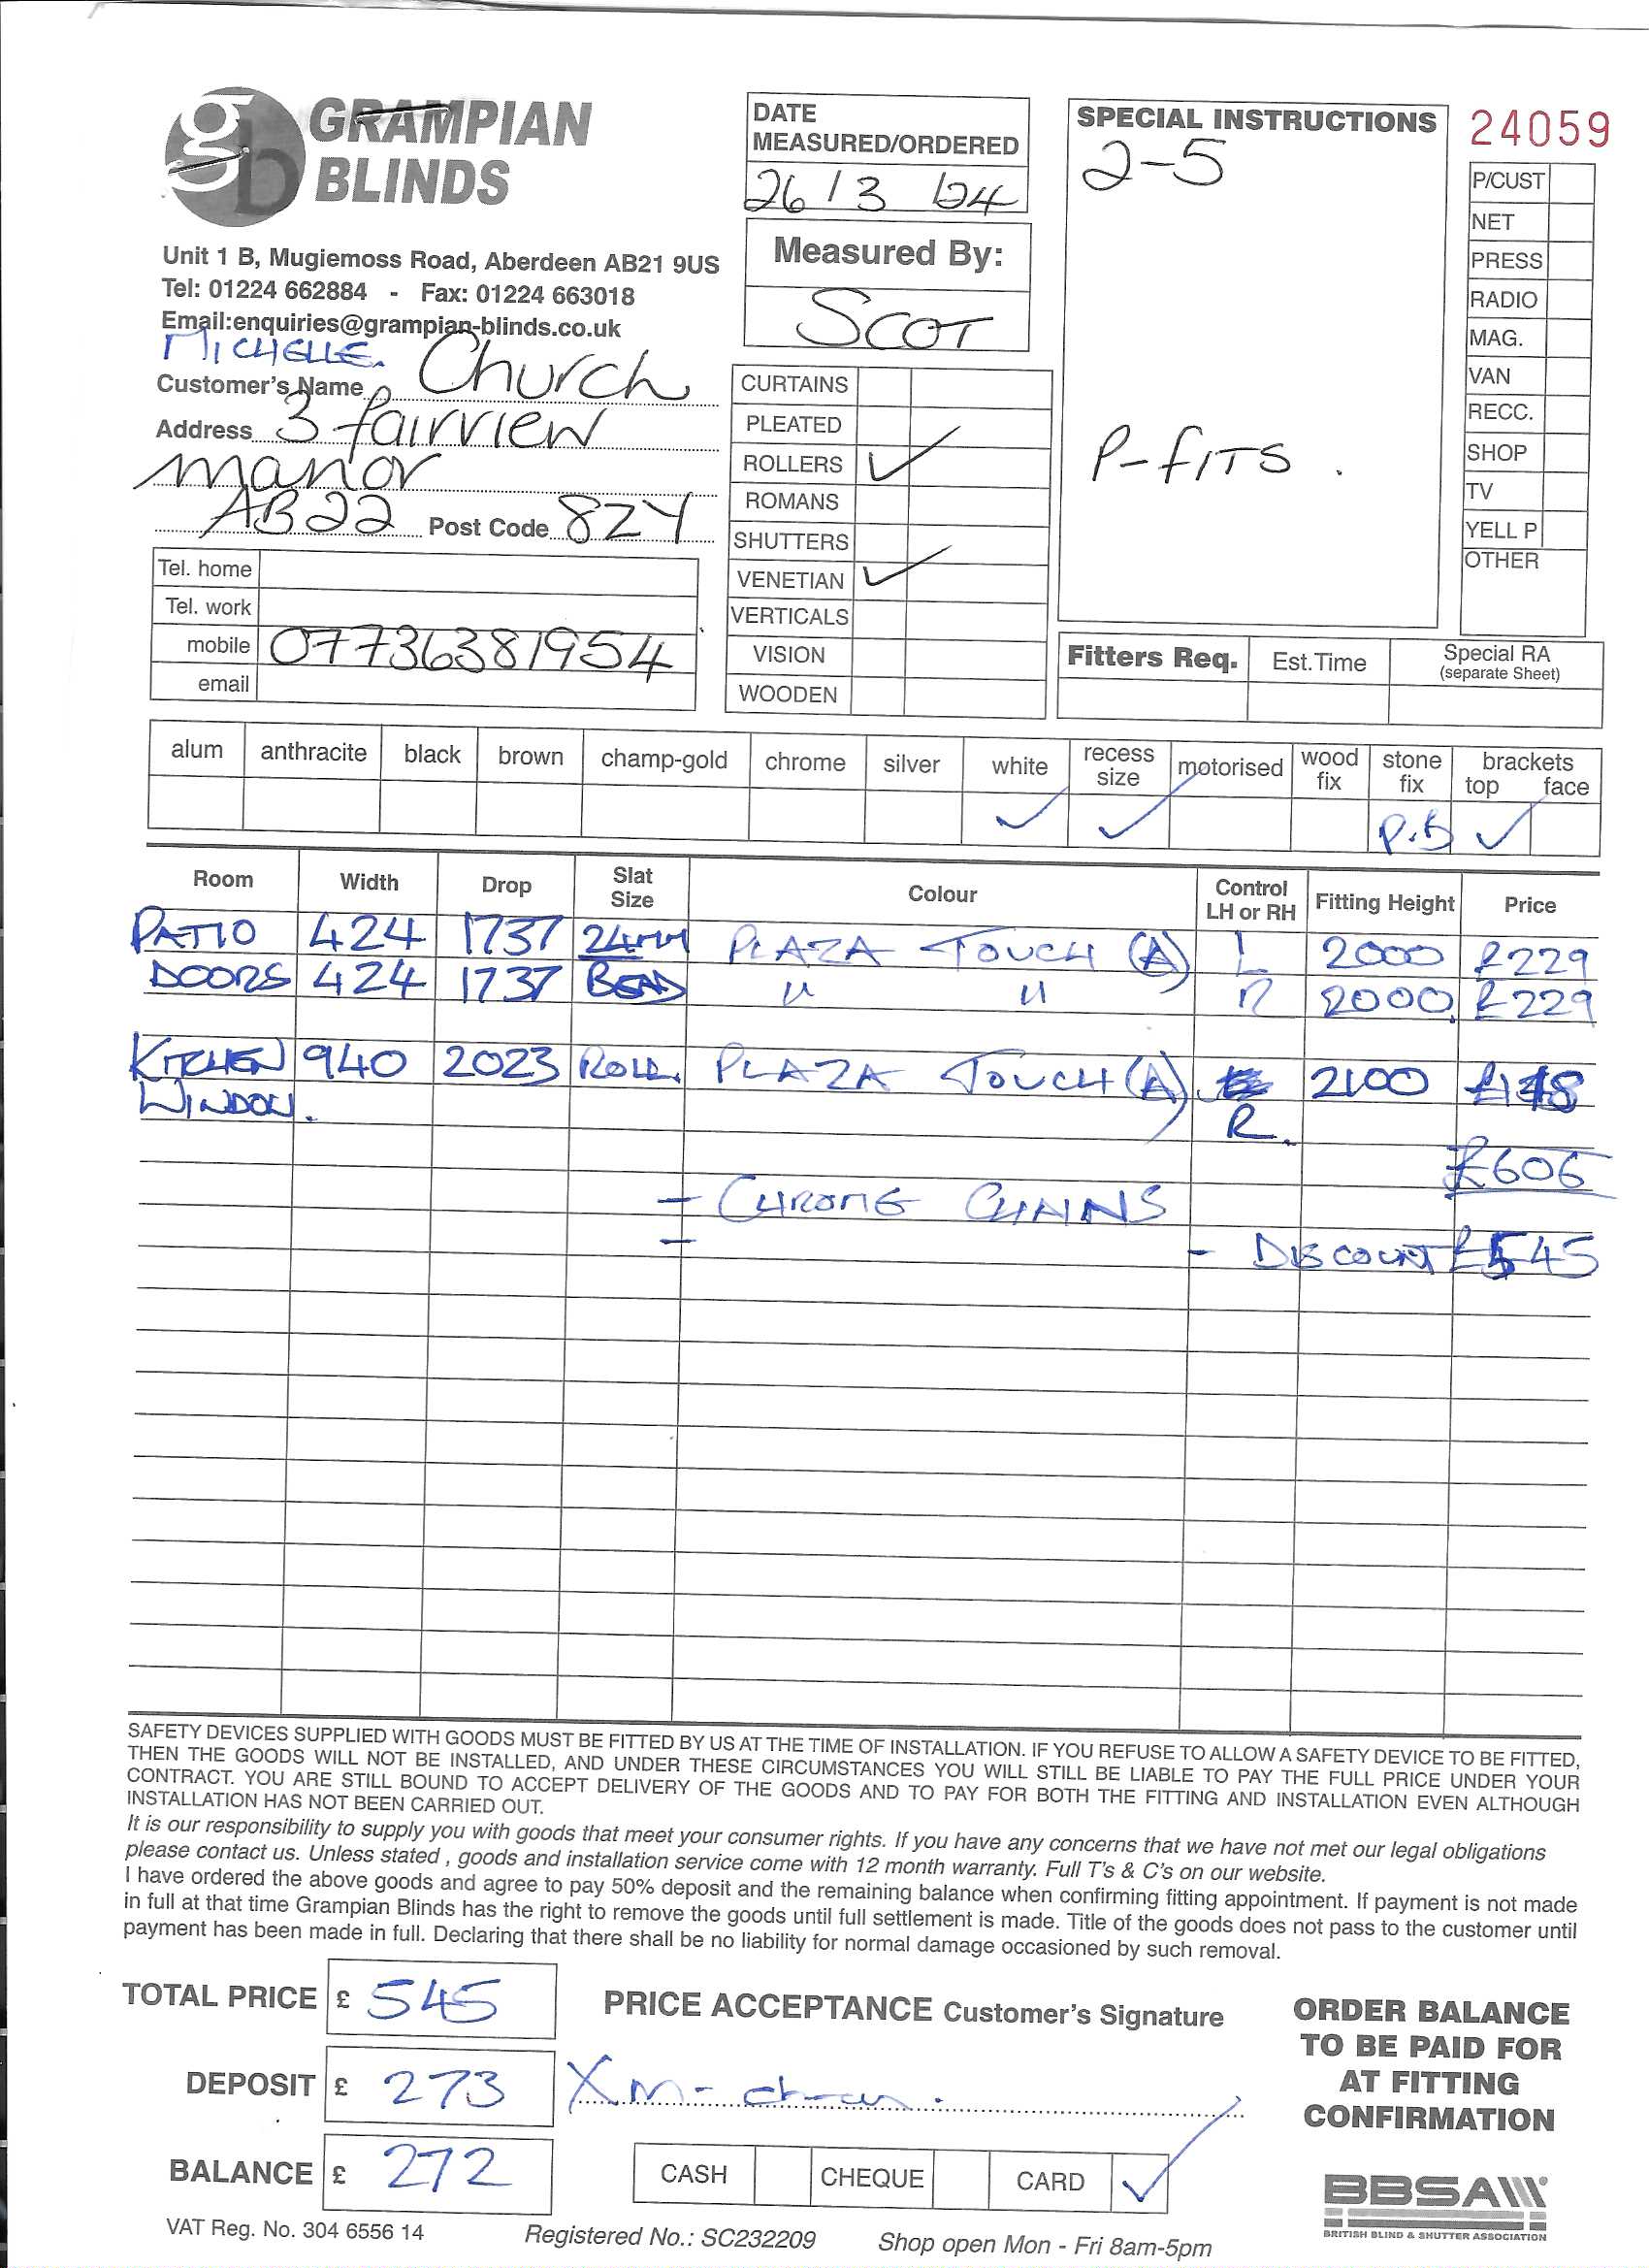 GRAMPIAN
BLINDS
gb
Unit 1 B, Mugiemoss Road, Aberdeen AB21 9US
Tel: 01224 662884 - Fax: 01224 663018
Email:enquiries@grampian-blinds.co.uk
MICHELLE. Church
Customer's Name
Address 3 fairview
manor
AB22 Post Code 8ZY
Tel. home
Tel. work
mobile 07736381954
email
DATE
MEASURED/ORDERED
26/3/24
Measured By:
SCOT
CURTAINS
PLEATED
ROLLERS ✓
ROMANS
SHUTTERS
VENETIAN ✓
VERTICALS
VISION
WOODEN
SPECIAL INSTRUCTIONS
2-5
P-fITS.
24059
P/CUST
NET
PRESS
RADIO
MAG.
VAN
RECC.
SHOP
TV
YELL P
OTHER
Fitters Req. Est.Time Special RA
(separate Sheet)
alum anthracite black brown champ-gold chrome silver white recess size motorised wood fix stone fix brackets top face
✓ ✓ P.B ✓
Room Width Drop Slat Size Colour Control LH or RH Fitting Height Price
PATIO 424 1737 24MM PLAZA TOUCH (A) L 2000 £229
DOORS 424 1737 BEAD " " R 2000 £229
KITCHEN 940 2023 ROLL. PLAZA TOUCH (A) 2100 £148
WINDOW. R.
£606
- CHROME CHAINS
- - DISCOUNT £545
SAFETY DEVICES SUPPLIED WITH GOODS MUST BE FITTED BY US AT THE TIME OF INSTALLATION. IF YOU REFUSE TO ALLOW A SAFETY DEVICE TO BE FITTED,
THEN THE GOODS WILL NOT BE INSTALLED, AND UNDER THESE CIRCUMSTANCES YOU WILL STILL BE LIABLE TO PAY THE FULL PRICE UNDER YOUR
CONTRACT. YOU ARE STILL BOUND TO ACCEPT DELIVERY OF THE GOODS AND TO PAY FOR BOTH THE FITTING AND INSTALLATION EVEN ALTHOUGH
INSTALLATION HAS NOT BEEN CARRIED OUT.
It is our responsibility to supply you with goods that meet your consumer rights. If you have any concerns that we have not met our legal obligations
please contact us. Unless stated , goods and installation service come with 12 month warranty. Full T's & C's on our website.
I have ordered the above goods and agree to pay 50% deposit and the remaining balance when confirming fitting appointment. If payment is not made
in full at that time Grampian Blinds has the right to remove the goods until full settlement is made. Title of the goods does not pass to the customer until
payment has been made in full. Declaring that there shall be no liability for normal damage occasioned by such removal.
TOTAL PRICE £ 545
DEPOSIT £ 273
BALANCE £ 272
PRICE ACCEPTANCE Customer's Signature
X
CASH CHEQUE CARD ✓
ORDER BALANCE
TO BE PAID FOR
AT FITTING
CONFIRMATION
BBSA
BRITISH BLIND & SHUTTER ASSOCIATION
VAT Reg. No. 304 6556 14 Registered No.: SC232209 Shop open Mon - Fri 8am-5pm